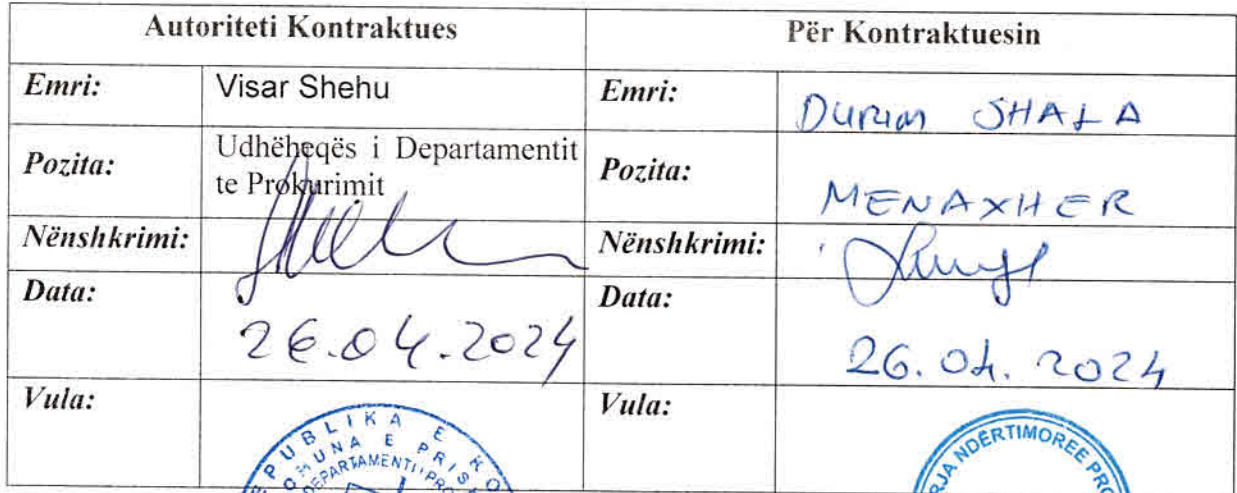 Autoriteti Kontraktues
Për Kontraktuesin
Emri:
Visar Shehu
Emri:
Durim SHALA
Pozita:
Udhëheqës i Departamentit
te Prokurimit
Pozita:
MENAXHER
Nënshkrimi:
Nënshkrimi:
Data:
26.04.2024
Data:
26.04.2024
Vula:
Vula: